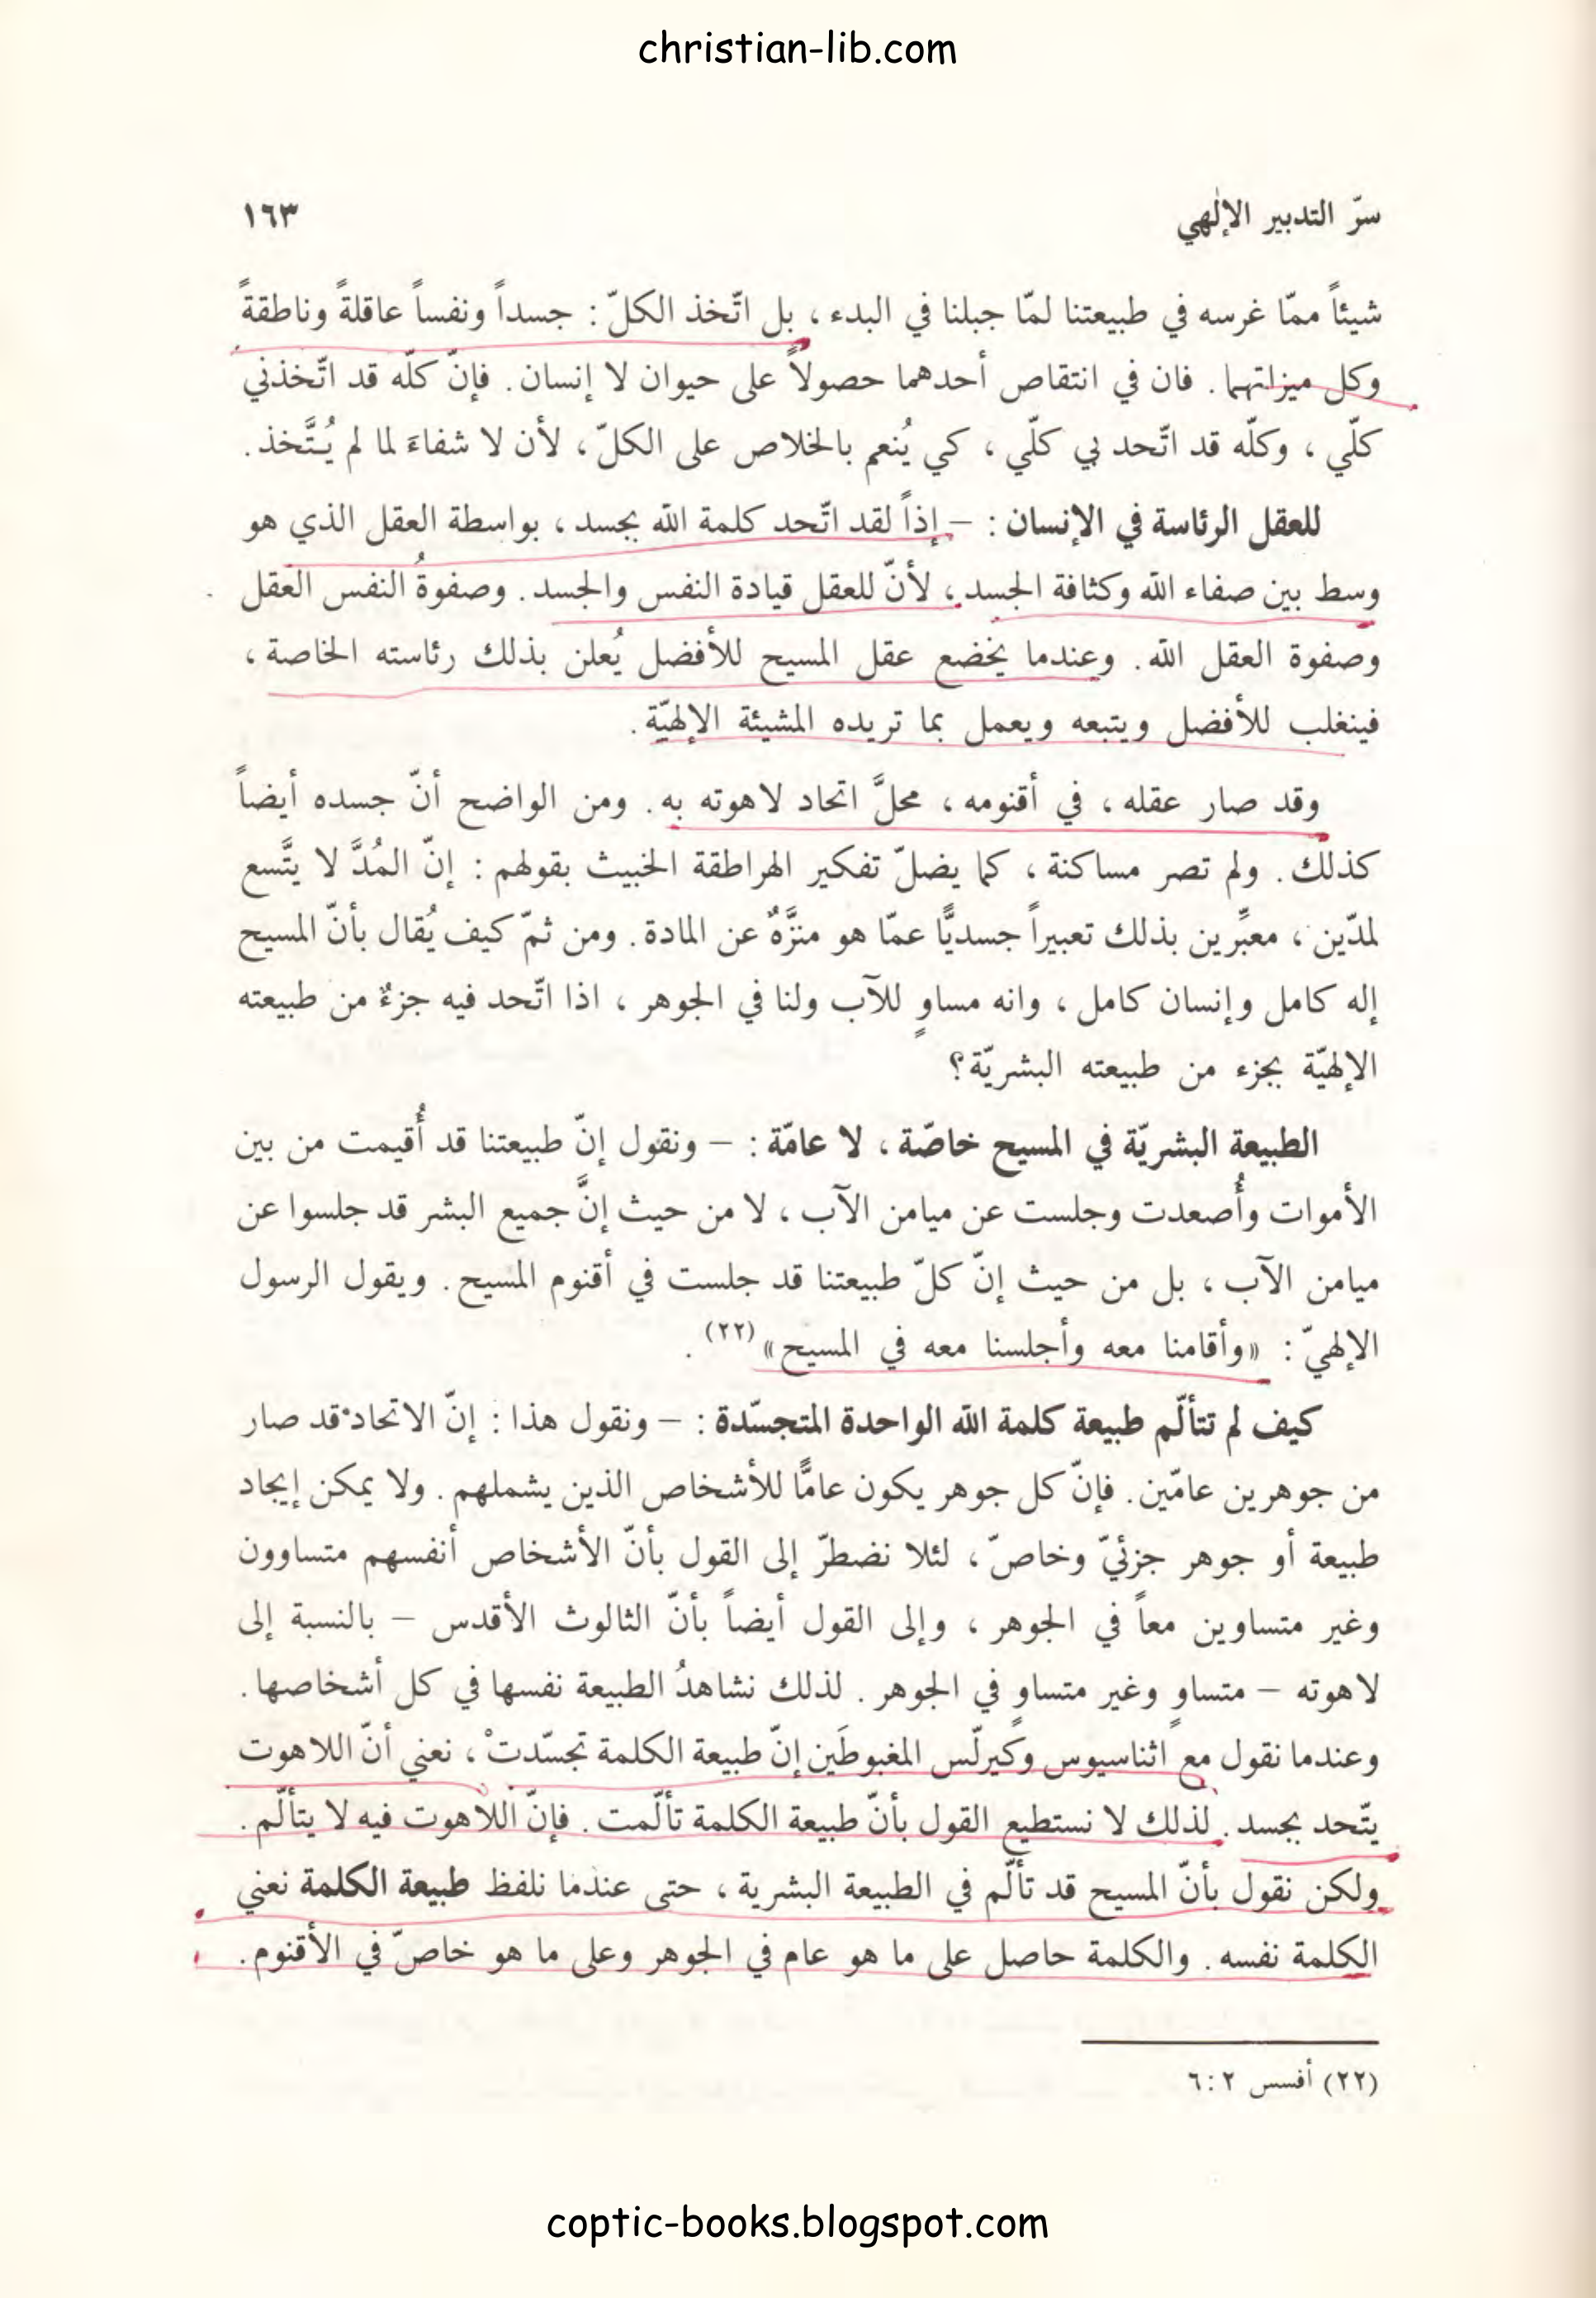 christian-lib.com
سرّ التدبير الإلٰهي ١٦٣
شيئاً ممّا غرسه في طبيعتنا لمّا جبلنا في البدء ، بل اتّخذ الكلّ : جسداً ونفساً عاقلةً وناطقةً
وكل ميزاتهما . فان في انتقاص أحدهما حصولاً على حيوان لا إنسان . فإنّ كلّه قد اتّخذني
كلّي ، وكلّه قد اتّحد بي كلّي ، كي يُنعم بالخلاص على الكلّ ، لأن لا شفاءَ لما لم يُتَّخذ .
للعقل الرئاسة في الإنسان : – إذاً لقد اتّحد كلمة الله بجسد ، بواسطة العقل الذي هو
وسط بين صفاء الله وكثافة الجسد ، لأنّ للعقل قيادة النفس والجسد . وصفوةُ النفس العقل
وصفوة العقل الله . وعندما يخضع عقل المسيح للأفضل يُعلن بذلك رئاسته الخاصة ،
فينغلب للأفضل ويتبعه ويعمل بما تريده المشيئة الإلهيّة .
وقد صار عقله ، في أقنومه ، محلَّ اتحاد لاهوته به . ومن الواضح أنّ جسده أيضاً
كذلك . ولم تصر مساكنة ، كما يضلّ تفكير الهراطقة الخبيث بقولهم : إنّ المُدَّ لا يتَّسع
لمدّين ، معبِّرين بذلك تعبيراً جسديًّا عمّا هو منزَّهٌ عن المادة . ومن ثمّ كيف يُقال بأنّ المسيح
إله كامل وإنسان كامل ، وانه مساوٍ للآب ولنا في الجوهر ، اذا اتّحد فيه جزءٌ من طبيعته
الإلهيّة بجزء من طبيعته البشريّة؟
الطبيعة البشريّة في المسيح خاصّة ، لا عامّة : – ونقول إنّ طبيعتنا قد أُقيمت من بين
الأموات وأُصعدت وجلست عن ميامن الآب ، لا من حيث إنَّ جميع البشر قد جلسوا عن
ميامن الآب ، بل من حيث إنّ كلّ طبيعتنا قد جلست في أقنوم المسيح . ويقول الرسول
الإلهيّ : «وأقامنا معه وأجلسنا معه في المسيح»(٢٢) .
كيف لم تتألّم طبيعة كلمة الله الواحدة المتجسّدة : – ونقول هذا : إنّ الاتحاد قد صار
من جوهرين عامّين . فإنّ كل جوهر يكون عامًّا للأشخاص الذين يشملهم . ولا يمكن إيجاد
طبيعة أو جوهر جزئيّ وخاصّ ، لئلا نضطرّ إلى القول بأنّ الأشخاص أنفسهم متساوون
وغير متساوين معاً في الجوهر ، وإلى القول أيضاً بأنّ الثالوث الأقدس – بالنسبة إلى
لاهوته – متساوٍ وغير متساوٍ في الجوهر . لذلك نشاهدُ الطبيعة نفسها في كل أشخاصها .
وعندما نقول مع اثناسيوس وكيرلّس المغبوطَين إنّ طبيعة الكلمة تجسّدتْ ، نعني أنّ اللاهوت
يتّحد بجسد . لذلك لا نستطيع القول بأنّ طبيعة الكلمة تألّمت . فإنّ اللاهوت فيه لا يتألّم .
ولكن نقول بأنّ المسيح قد تألّم في الطبيعة البشرية ، حتى عندما نلفظ طبيعة الكلمة نعني
الكلمة نفسه . والكلمة حاصل على ما هو عام في الجوهر وعلى ما هو خاصّ في الأقنوم .
(٢٢) أفسس ٢ : ٦
coptic-books.blogspot.com